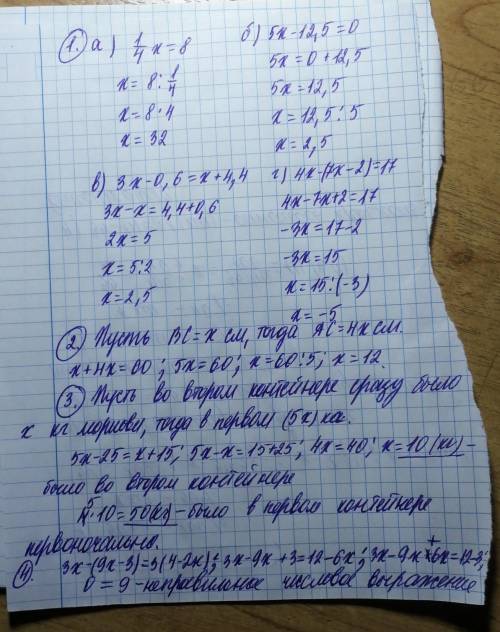 1. а) 1/4 x = 8
x = 8 : 1/4
x = 8 · 4
x = 32
б) 5x - 12,5 = 0
5x = 0 + 12,5
5x = 12,5
x = 12,5 : 5
x = 2,5
в) 3x - 0,6 = x + 4,4
3x - x = 4,4 + 0,6
2x = 5
x = 5 : 2
x = 2,5
г) 4x - (7x - 2) = 17
4x - 7x + 2 = 17
-3x = 17 - 2
-3x = 15
x = 15 : (-3)
x = -5
2. Пусть BC = x см, тогда AC = 4x см.
x + 4x = 60 ; 5x = 60 ; x = 60 : 5 ; x = 12.
3. Пусть во втором контейнере сразу было
x кг моркови, тогда в первом (5x) кг.
5x - 25 = x + 15 ; 5x - x = 15 + 25 ; 4x = 40 ; x = 10 (кг) -
было во втором контейнере
5 · 10 = 50 (кг) - было в первом контейнере
первоначально.
4. 3x - (9x - 3) = 3(4 - 2x) ; 3x - 9x + 3 = 12 - 6x ; 3x - 9x + 6x = 12 - 3 ;
0 = 9 - неправильное числовое выражение